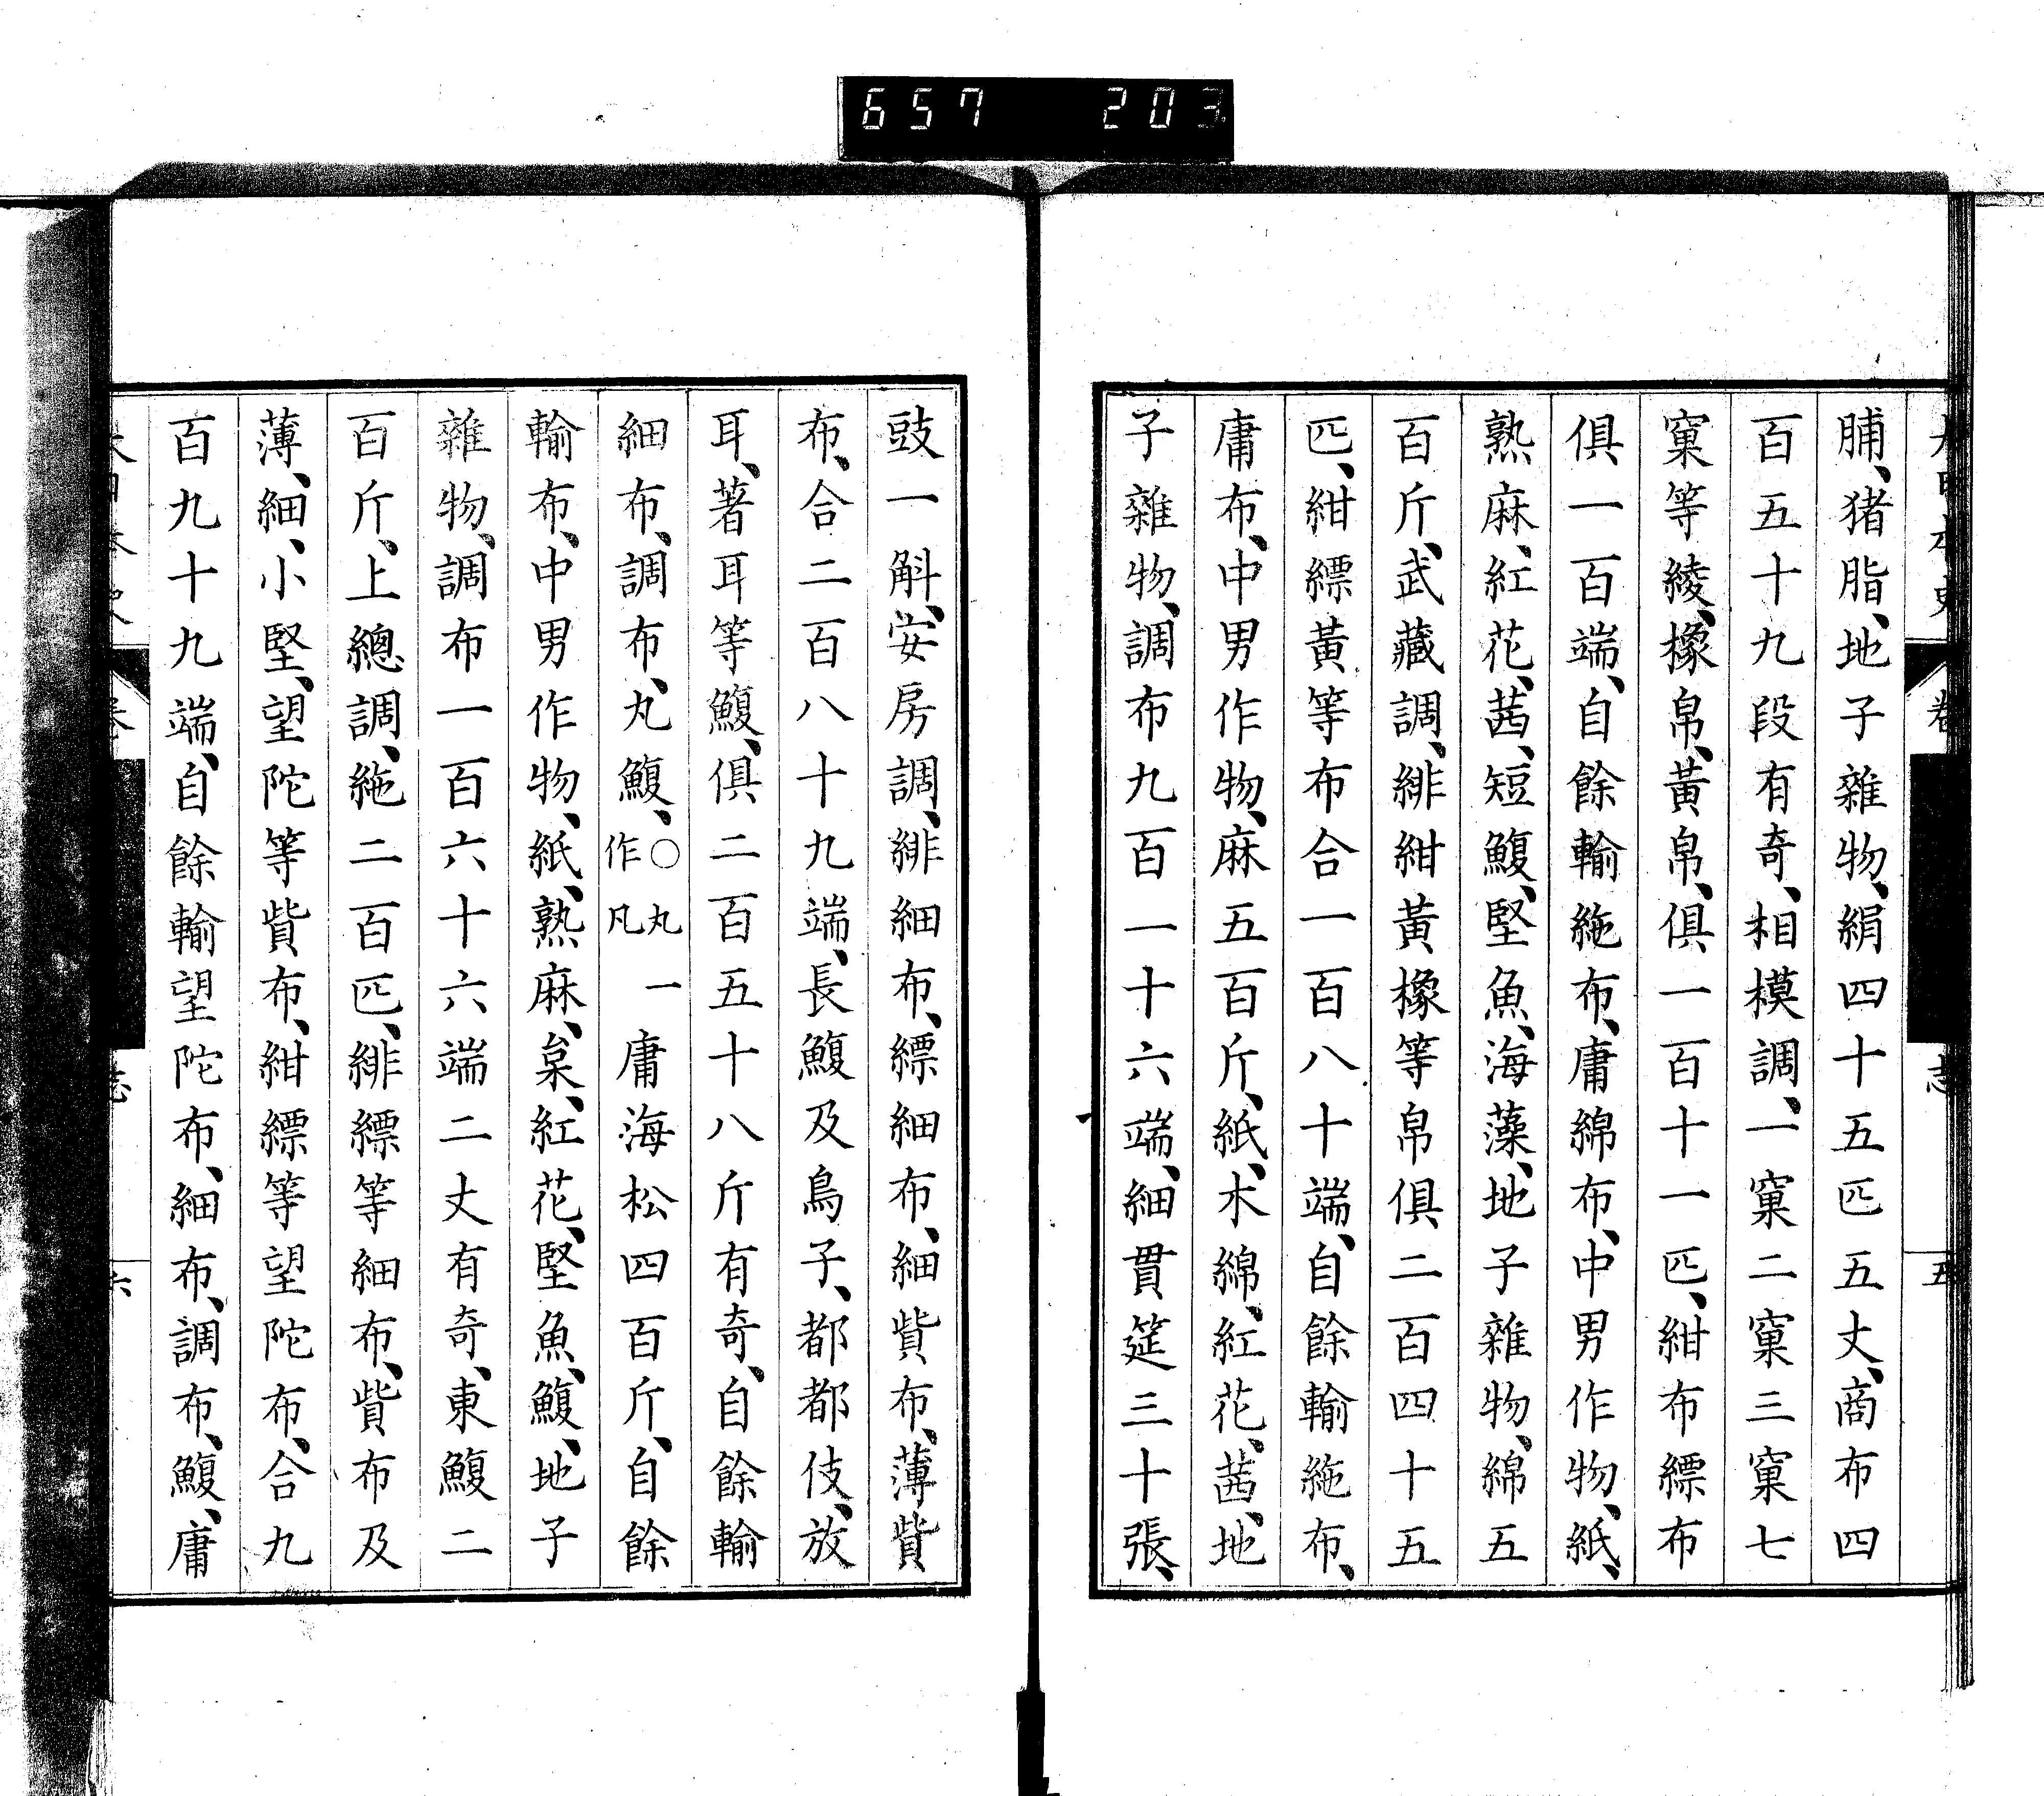 657 203
脯、猪脂、地子雜物、絹四十五匹五丈、商布四
百五十九段有奇、相模調、一窠二窠三窠七
窠等綾、橡帛、黃帛、俱一百十一匹、紺布縹布
俱一百端、自餘輸絁布、庸綿布、中男作物、紙、
熟麻、紅花、茜、短鰒、堅魚、海藻、地子雜物、綿五
百斤、武藏調、緋紺黃橡等帛俱二百四十五
匹、紺縹黃等布合一百八十端、自餘輸絁布、
庸布、中男作物、麻五百斤、紙、木綿、紅花、茜、地
子雜物、調布九百一十六端、細貫筵三十張、
豉一斛、安房調、緋細布、縹細布、細貲布、薄貲
布、合二百八十九端、長鰒及鳥子、都都伎、放
耳、著耳等鰒、俱二百五十八斤有奇、自餘輸
細布、調布、丸鰒、○丸一作凡庸海松四百斤、自餘
輸布、中男作物、紙、熟麻、枲、紅花、堅魚、鰒、地子
雜物、調布一百六十六端二丈有奇、東鰒二
百斤、上總調、絁二百匹、緋縹等細布、貲布及
薄、細、小堅、望陀等貲布、紺縹等望陀布、合九
百九十九端、自餘輸望陀布、細布、調布、鰒、庸